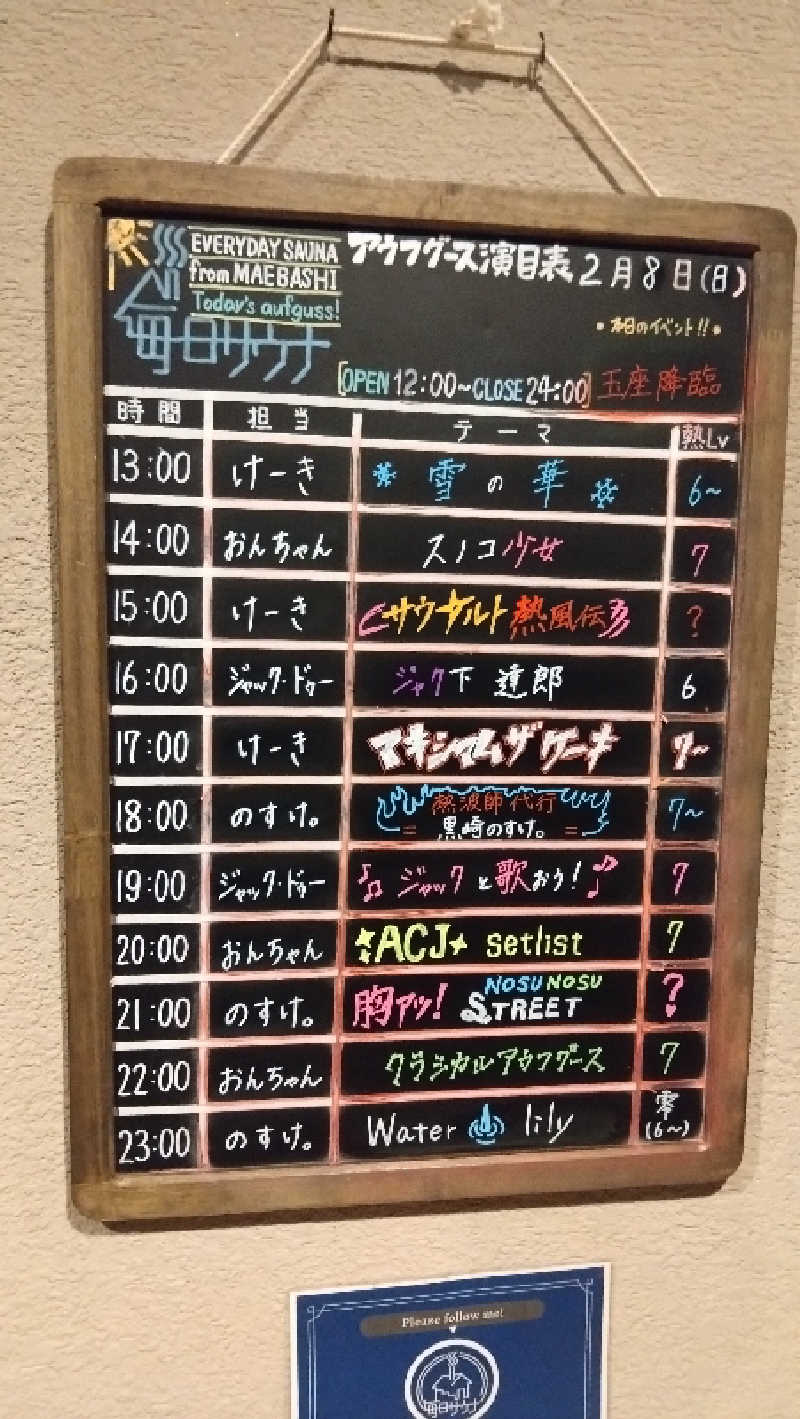 EVERYDAY SAUNA
from MAEBASHI
Today's aufguss!
毎日サウナ
アウフグース演目表 2月8日(日)
• 本日のイベント!! •
OPEN 12:00~CLOSE 24:00
玉座降臨
時間 担当 テーマ 熱Lv
13:00 けーき 雪の華 6~
14:00 おんちゃん スノコ少女 7
15:00 けーき サウナルト熱風伝 ?
16:00 ジャック・ドゥー ジャク下 達郎 6
17:00 けーき マキシマムザケーキ 7~
18:00 のすけ。 熱波師代行
=黒崎のすけ。= 7~
19:00 ジャック・ドゥー ♪♫ ジャックと歌おう!♪ 7
20:00 おんちゃん ACJ setlist 7
21:00 のすけ。 胸アツ! NOSU NOSU
STREET ?
22:00 おんちゃん クラシカルアウフグース 7
23:00 のすけ。 Water lily 零
(6~)
Please follow me!
毎日サウナ